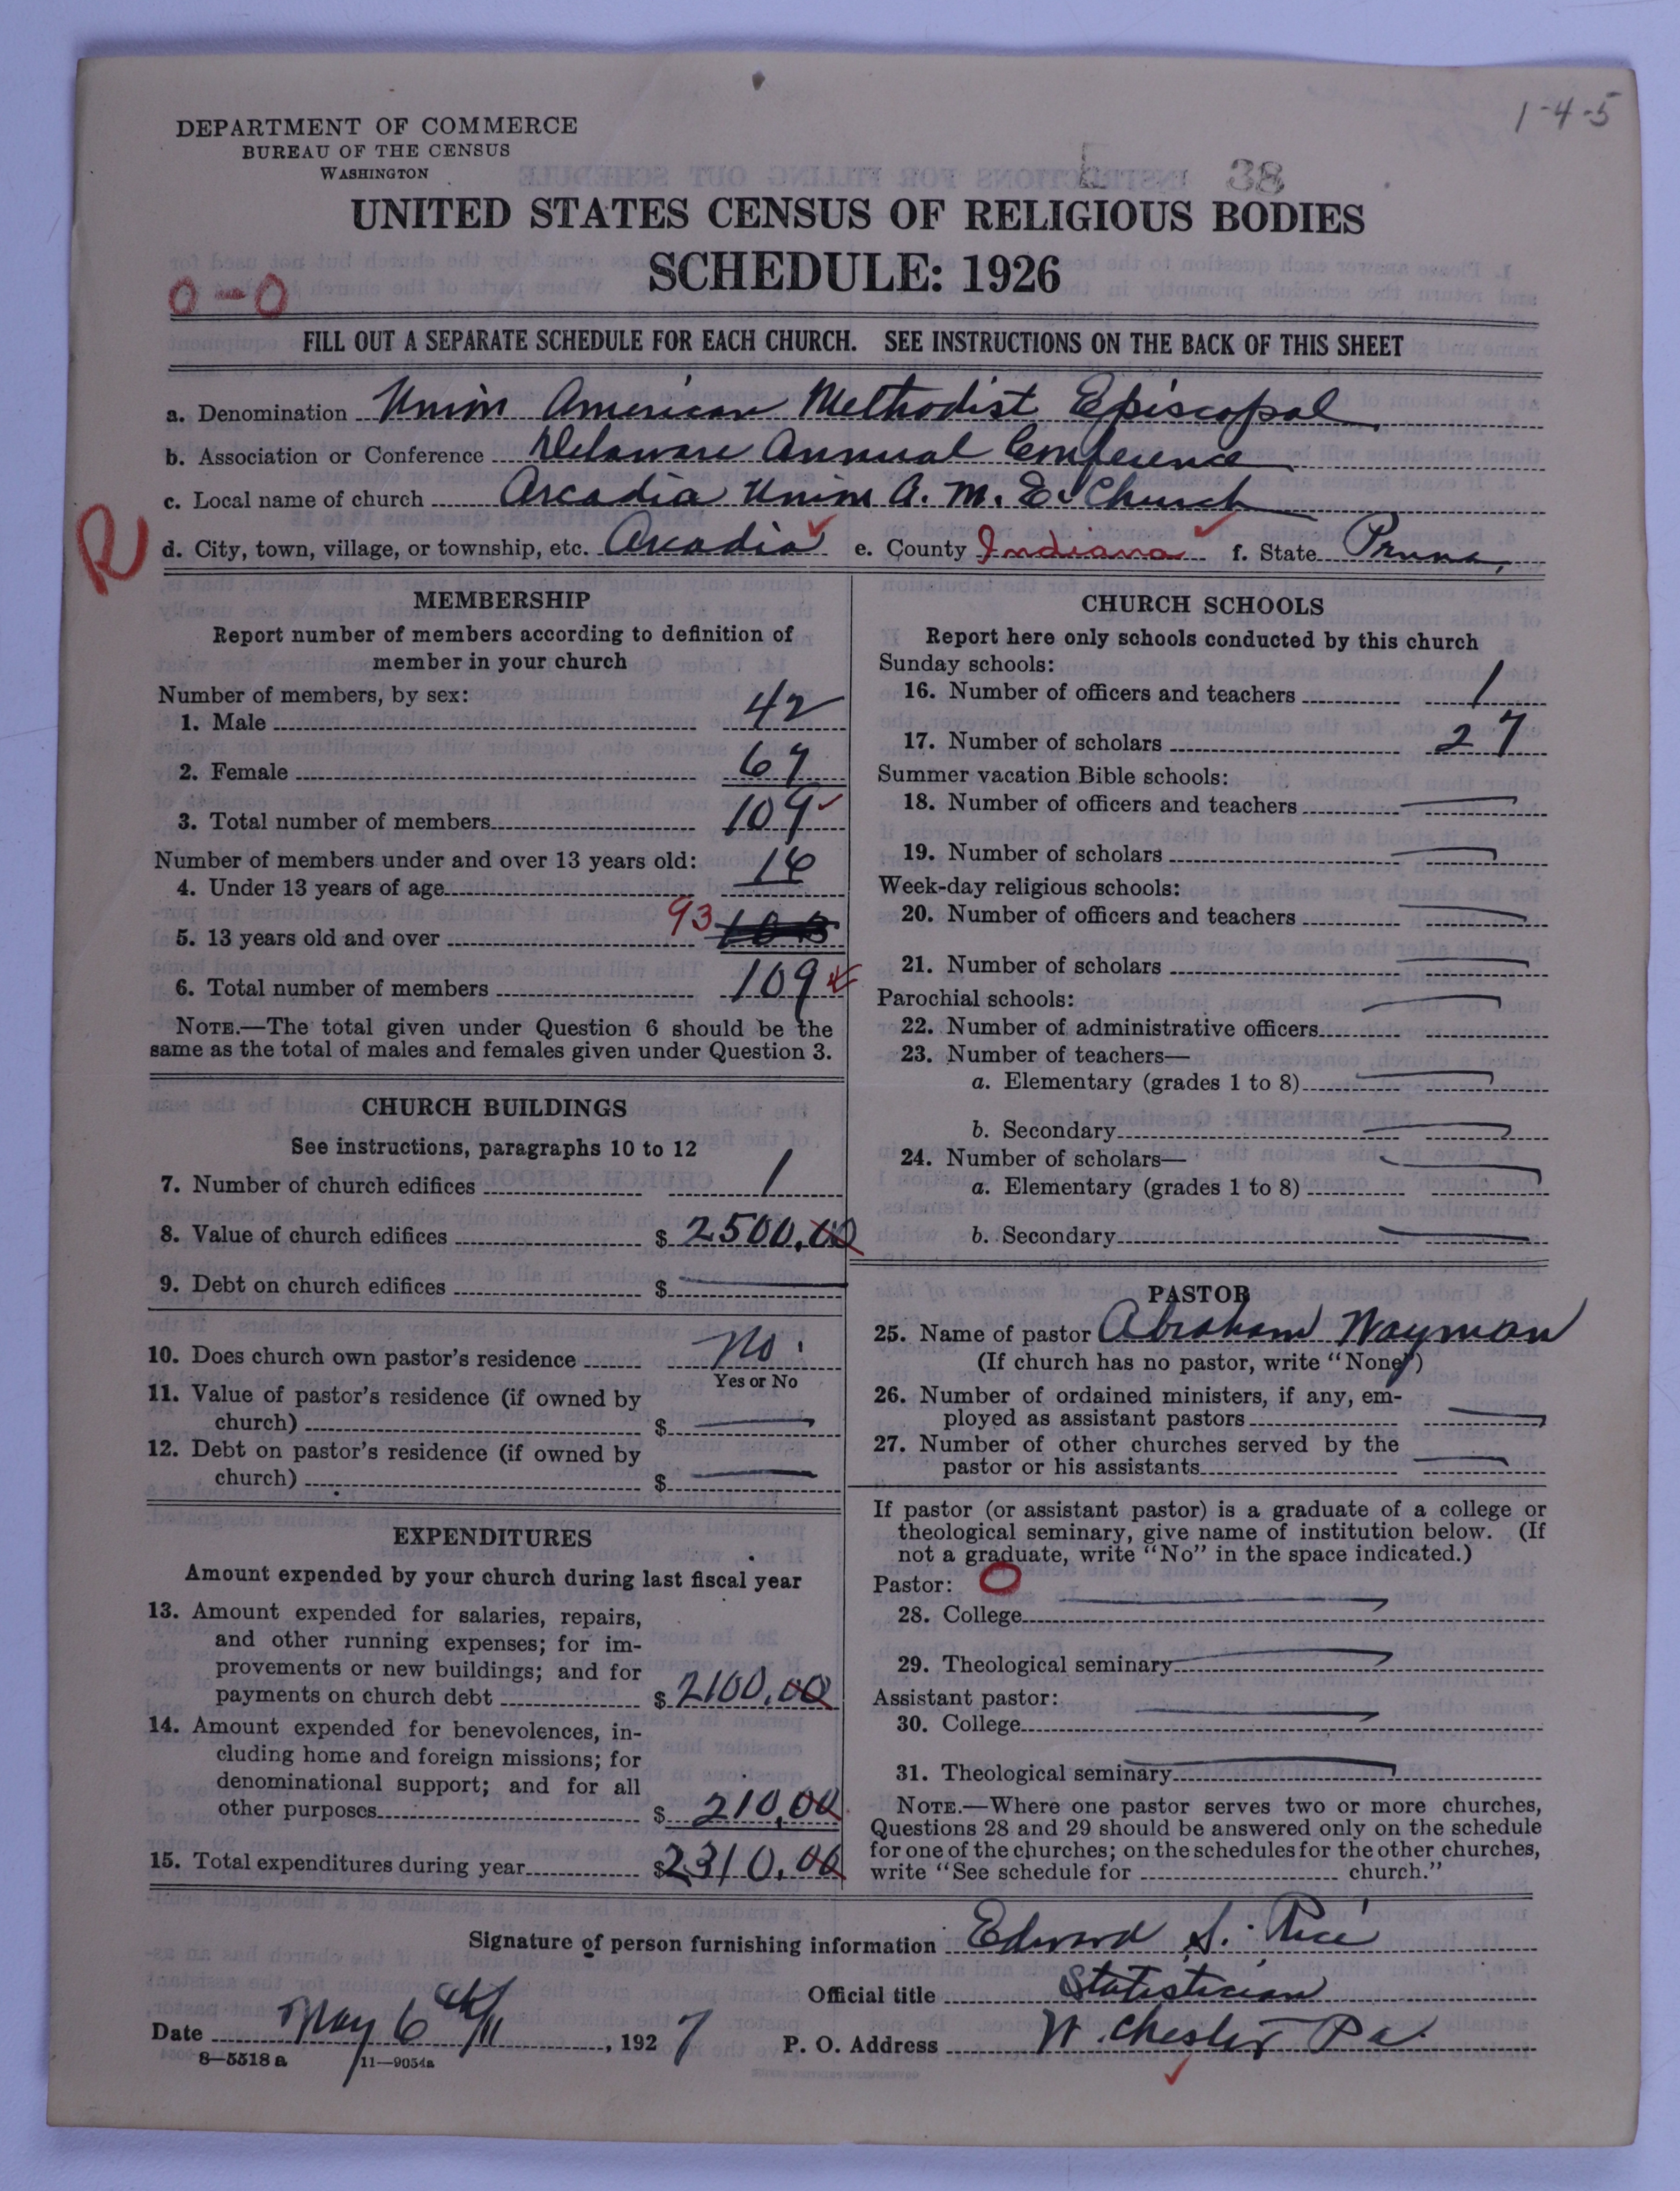 1-4-5
DEPARTMENT OF COMMERCE
BUREAU OF THE CENSUS
WASHINGTON
38
UNITED STATES CENSUS OF RELIGIOUS BODIES
SCHEDULE: 1926
0-0
FILL OUT A SEPARATE SCHEDULE FOR EACH CHURCH. SEE INSTRUCTIONS ON THE BACK OF THIS SHEET
a. Denomination Union American Methodist Episcopal
b. Association or Conference Delaware Annual Conference
c. Local name of church Arcadia Union A. M. E. Church
R
d. City, town, village, or township, etc. Arcadia e. County Indiana f. State Penna.
MEMBERSHIP
Report number of members according to definition of
member in your church
Number of members, by sex:
1. Male 42
2. Female 67
3. Total number of members 109
Number of members under and over 13 years old:
4. Under 13 years of age 16
5. 13 years old and over 93
6. Total number of members 109
NOTE.—The total given under Question 6 should be the
same as the total of males and females given under Question 3.
CHURCH BUILDINGS
See instructions, paragraphs 10 to 12
7. Number of church edifices 1
8. Value of church edifices $ 2500.00
9. Debt on church edifices $
10. Does church own pastor's residence No
Yes or No
11. Value of pastor's residence (if owned by
church) $
12. Debt on pastor's residence (if owned by
church) $
EXPENDITURES
Amount expended by your church during last fiscal year
13. Amount expended for salaries, repairs,
and other running expenses; for im-
provements or new buildings; and for
payments on church debt $ 2100.00
14. Amount expended for benevolences, in-
cluding home and foreign missions; for
denominational support; and for all
other purposes $ 210.00
15. Total expenditures during year $ 2310.00
CHURCH SCHOOLS
Report here only schools conducted by this church
Sunday schools:
16. Number of officers and teachers 1
17. Number of scholars 27
Summer vacation Bible schools:
18. Number of officers and teachers
19. Number of scholars
Week-day religious schools:
20. Number of officers and teachers
21. Number of scholars
Parochial schools:
22. Number of administrative officers
23. Number of teachers—
a. Elementary (grades 1 to 8)
b. Secondary
24. Number of scholars—
a. Elementary (grades 1 to 8)
b. Secondary
PASTOR
25. Name of pastor Abraham Wayman
(If church has no pastor, write "None")
26. Number of ordained ministers, if any, em-
ployed as assistant pastors
27. Number of other churches served by the
pastor or his assistants
If pastor (or assistant pastor) is a graduate of a college or
theological seminary, give name of institution below. (If
not a graduate, write "No" in the space indicated.)
Pastor: O
28. College
29. Theological seminary
Assistant pastor:
30. College
31. Theological seminary
NOTE.—Where one pastor serves two or more churches,
Questions 28 and 29 should be answered only on the schedule
for one of the churches; on the schedules for the other churches,
write "See schedule for church."
Signature of person furnishing information Edward S. Rice
Official title Statistician
Date May 6th, 1927 P. O. Address W. Chester Pa.
8—5518 a 11—9054a